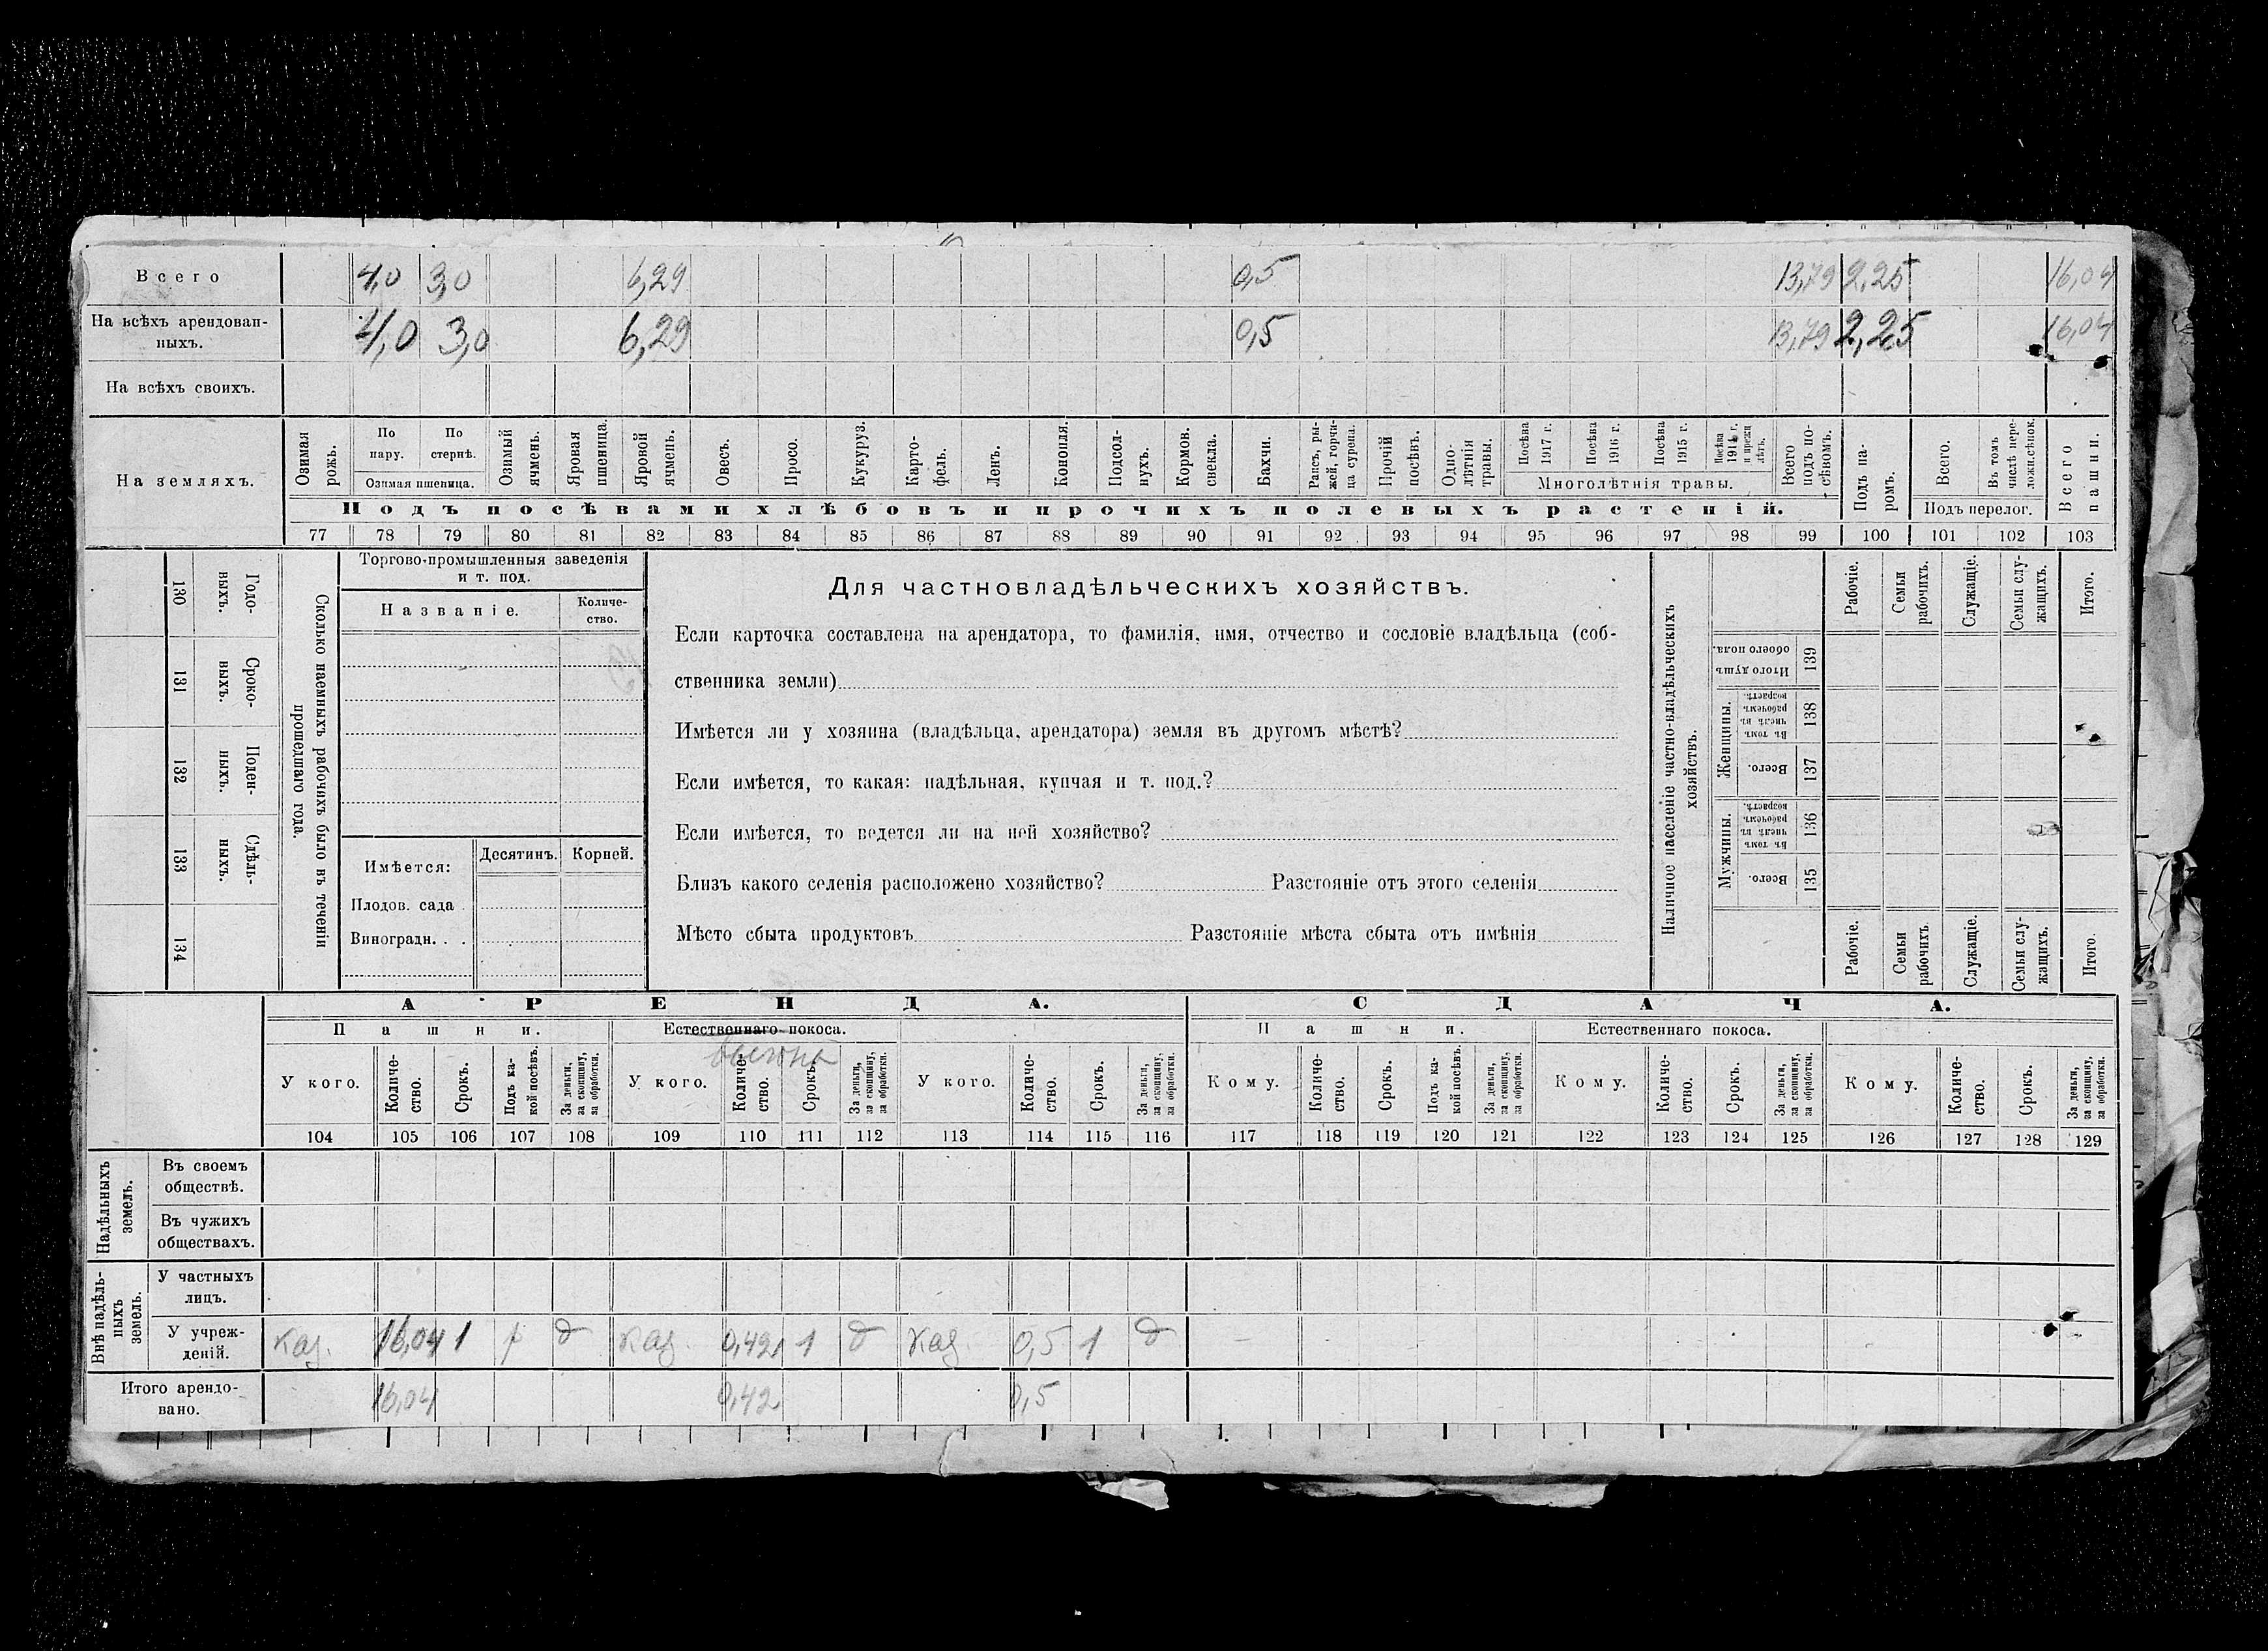 Всего 4,0 3,0 6,29 0,5 13,79 2,25 16,04
На всѣхъ арендован-
ныхъ. 4,0 3,0 6,29 0,5 13,79 2,25 16,04
На всѣхъ своихъ.
На земляхъ.
Озимая рожь.
По пару.
По стернѣ.
Озимая пшеница.
Озимый ячмень.
Яровая пшеница.
Яровой ячмень.
Овесъ.
Просо.
Кукуруз.
Карто-
фель.
Ленъ.
Конопля.
Подсол-
нухъ.
Кормов. свекла.
Бахчи.
Рапсъ, ры-
жей, горчи-
ца сурепа.
Прочій посѣвъ.
Одно-
лѣтнія травы.
Посѣва 1917 г.
Посѣва 1916 г.
Посѣва 1915 г.
Посѣва 1914 г. и прежн. лѣтъ.
Многолѣтнія травы.
Всего подъ по-
сѣвомъ.
Подъ посѣвами хлѣбовъ и прочихъ полевыхъ растеній.
Подъ па-
ромъ.
Всего.
Въ томъ числѣ пере-
ложн.сѣнок.
Подъ перелог.
Всего пашни.
77 78 79 80 81 82 83 84 85 86 87 88 89 90 91 92 93 94 95 96 97 98 99 100 101 102 103
130 Годо-
выхъ.
131 Сроко-
выхъ.
132 Поден-
ныхъ.
133 Сдѣль-
ныхъ.
134
Сколько наемныхъ рабочихъ было въ теченіи
прошедшаго года.
Торгово-промышленныя заведенія
и т. под.
Названіе.
Количе-
ство.
Имѣется: Десятинъ. Корней.
Плодов. сада .
Виноградн. . .
Для частновладѣльческихъ хозяйствъ.
Если карточка составлена на арендатора, то фамилія, имя, отчество и сословіе владѣльца (соб-
ственника земли)
Имѣется ли у хозяина (владѣльца, арендатора) земля въ другомъ мѣстѣ?
Если имѣется, то какая: надѣльная, купчая и т. под.?
Если имѣется, то ведется ли на ней хозяйство?
Близъ какого селенія расположено хозяйство? Разстояніе отъ этого селенія
Мѣсто сбыта продуктовъ Разстояніе мѣста сбыта отъ имѣнія
Наличное населеніе частно-владѣльческихъ
хозяйствъ.
Рабочіе.
Семьи рабочихъ.
Служащіе.
Семьи слу-
жащихъ.
Итого.
Итого душъ обоего пола. 139
Женщины.
Въ томъ числѣ въ рабочемъ возрастѣ. 138
Всего. 137
Мужчины.
Въ томъ числѣ въ рабочемъ возрастѣ. 136
Всего. 135
Рабочіе.
Семьи рабочихъ.
Служащіе.
Семьи слу-
жащихъ.
Итого.
АРЕНДА. СДАЧА.
Пашни. Естественнаго покоса. Пашни. Естественнаго покоса.
выгона
У кого. Количе-
ство. Срокъ. Подъ ка-
кой посѣвъ. За деньги, за скопщину, за обработки.
У кого. Количе-
ство. Срокъ. За деньги, за скопщину, за обработки.
У кого. Количе-
ство. Срокъ. За деньги, за скопщину, за обработки.
Кому. Количе-
ство. Срокъ. Подъ ка-
кой посѣвъ. За деньги, за скопщину, за обработки.
Кому. Количе-
ство. Срокъ. За деньги, за скопщину, за обработки.
Кому. Количе-
ство. Срокъ. За деньги, за скопщину, за обработки.
104 105 106 107 108 109 110 111 112 113 114 115 116 117 118 119 120 121 122 123 124 125 126 127 128 129
Надѣльныхъ земель.
Въ своемъ
обществѣ.
Въ чужихъ
обществахъ.
Внѣ надѣль-
ныхъ земель.
У частныхъ
лицъ.
У учреж-
деній. каз. 16,04 1 р д каз. 0,42 1 д каз. 0,5 1 д
Итого арендо-
вано. 16,04 0,42 0,5